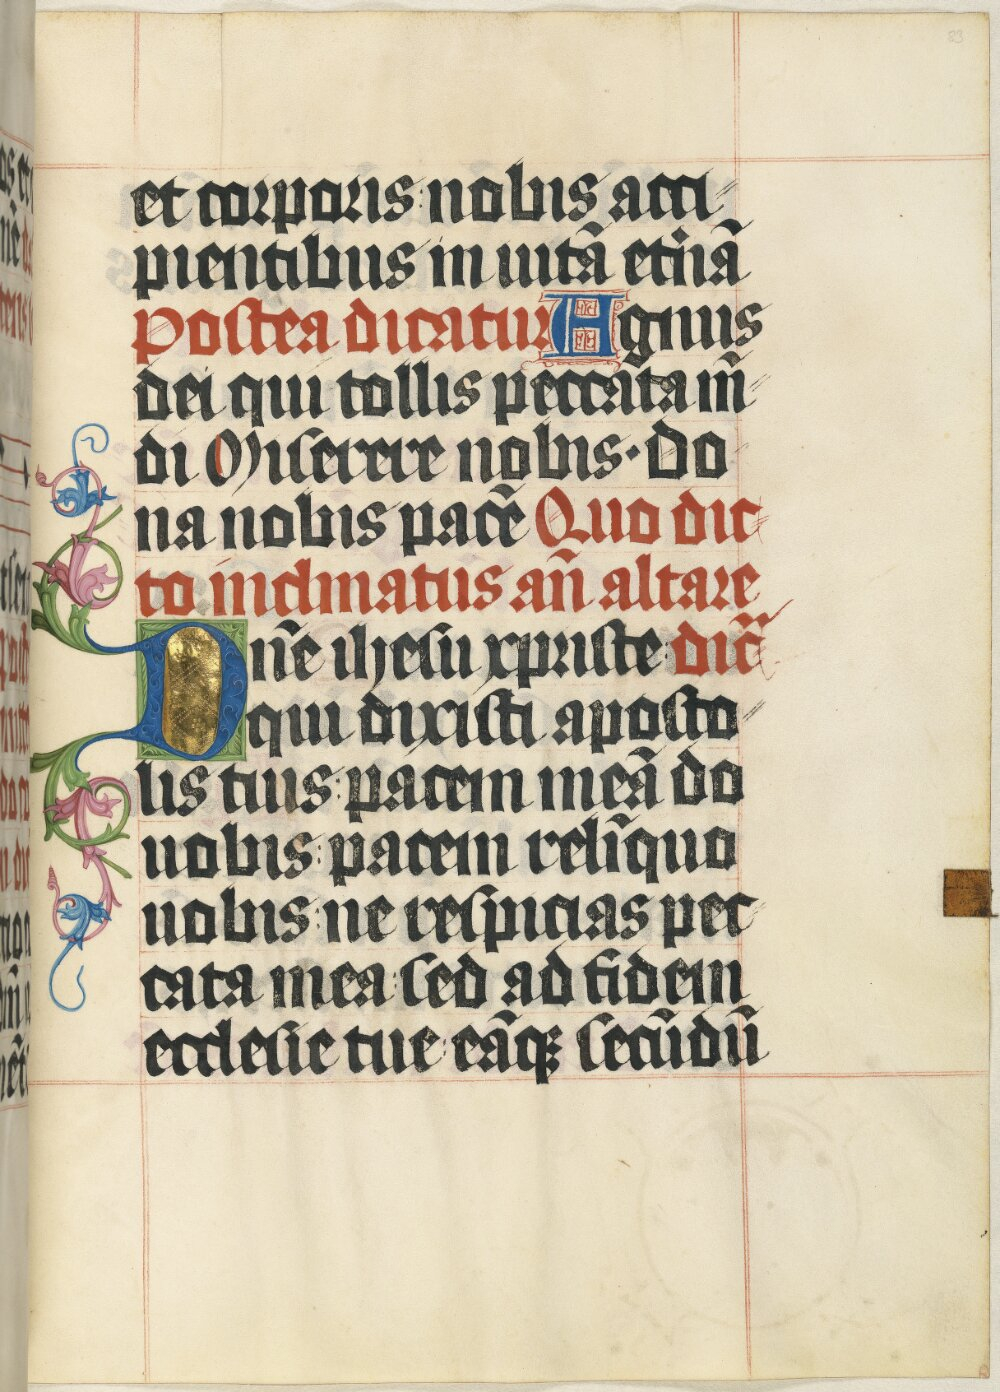 et corporis nobis acci
pientibus in uitā et̾nā
Postea dicatur Agnus
dei qui tollis peccata mū
di Miserere nobis · Do
na nobis pacē Quo dic
to inclinatus an̄ altare
Dn̄e ihesu xpriste dic̄
qui dixisti aposto
lis tuis pacem meā do
uobis pacem relīquo
uobis ne respicias pec
cata mea sed ad fidem
ecclesie tue eāqꝫ secūdū